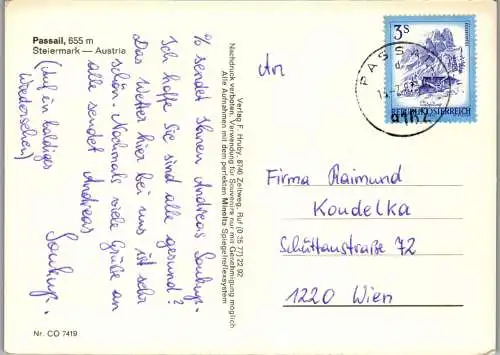 Passail, 655 m
Steiermark — Austria
% sendet Ihnen Andreas Soukup.
Ich hoffe Sie sind alle gesund?
Das Wetter hier bei uns ist sehr
schön. Nochmals viele Grüße an
alle sendet Andreas
Soukup.
(Auf ein baldiges
Wiedersehen)
Nr. CO 7419
Verlag F. Hruby, 8740 Zeltweg, Ruf (0 35 77) 22 92
Nachdruck verboten. Verwendung für Souvenirs nur mit Genehmigung möglich
Alle Aufnahmen mit dem perfekten Minolta Spiegelreflexsystem
3 S
REPUBLIK ÖSTERREICH
PASSAIL
An
Firma Raimund
Koudelka
Schüttaustraße 72
1220 Wien